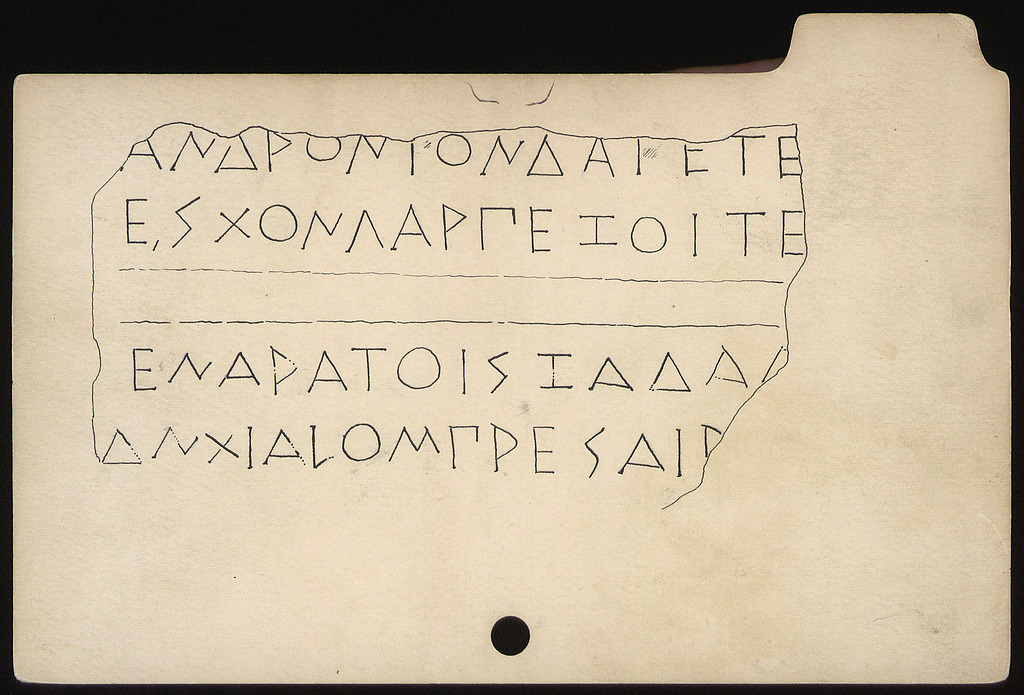 ΑΝΔΡΟΝΤΟΝΔΑΡΕΤΕ
ΕΣΧΟΝΓΑΡΠΕΖΟΙΤΕ
ΕΝΑΡΑΤΟΙΣΖΑΔΑ
ΑΝΧΙΑΛΟΜΠΡΕΣΑΙΡ